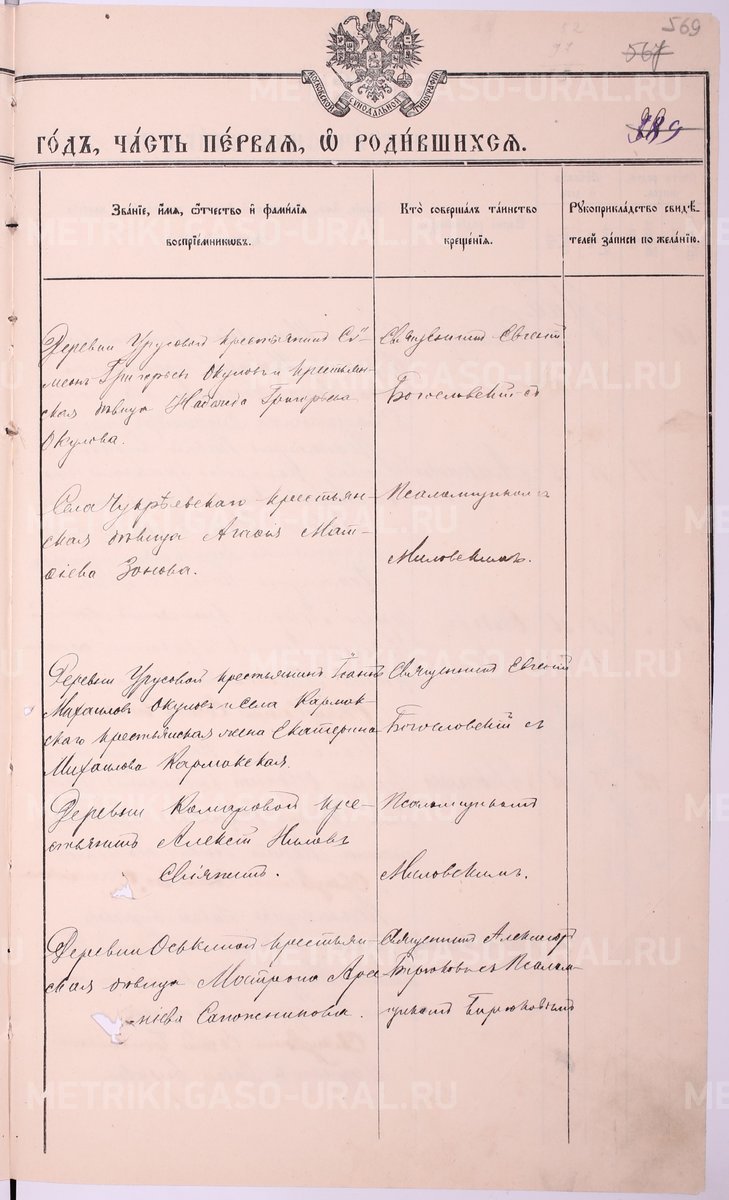 569
567
389
МОСКОВСКОЙ СѴНОДАЛЬНОЙ ТИПОГРАФІИ
ГО́ДЪ, ЧА́СТЬ ПЕ́РВАЯ, Ѡ҆ РОДИ́ВШИХСЯ.
Зва́ніе, и҆́мя, ѻ҆́тчество и҆ фами́лія
воспріе́мниковъ.
Кто̀ соверша́лъ та́инство
креще́нія.
Рꙋкоприкла́дство свидѣ́-
телей за́писи по жела́нію.
Деревни Урусовой крестьянинъ Си-
меонъ Григорьевъ Окуловъ и крестьян-
ская дѣвица Надежда Григорьева
Окулова.
Священникъ Евгеній
Богословскій съ
Села Чукрѣевскаго крестьян-
ская дѣвица Агафія Мат-
ѳіева Зонова.
Псаломщикомъ
Миловскимъ.
Деревни Урусовой крестьянинъ Іоаннъ
Михаиловъ Окуловъ и села Кармак-
скаго крестьянская жена Екатерина
Михаилова Кармакская.
Священникъ Евгеній
Богословскій съ
Деревни Комаровой кре-
стьянинъ Алексій Ниловъ
Псаломщикомъ
Миловскимъ.
Деревни Оськиной крестьян-
ская дѣвица Матрона Арсе
ніева Сапожникова.
Священникъ Александръ
Бирюковъ съ Псалом-
щикомъ Бирюковымъ
METRIKI.GASO-URAL.RU